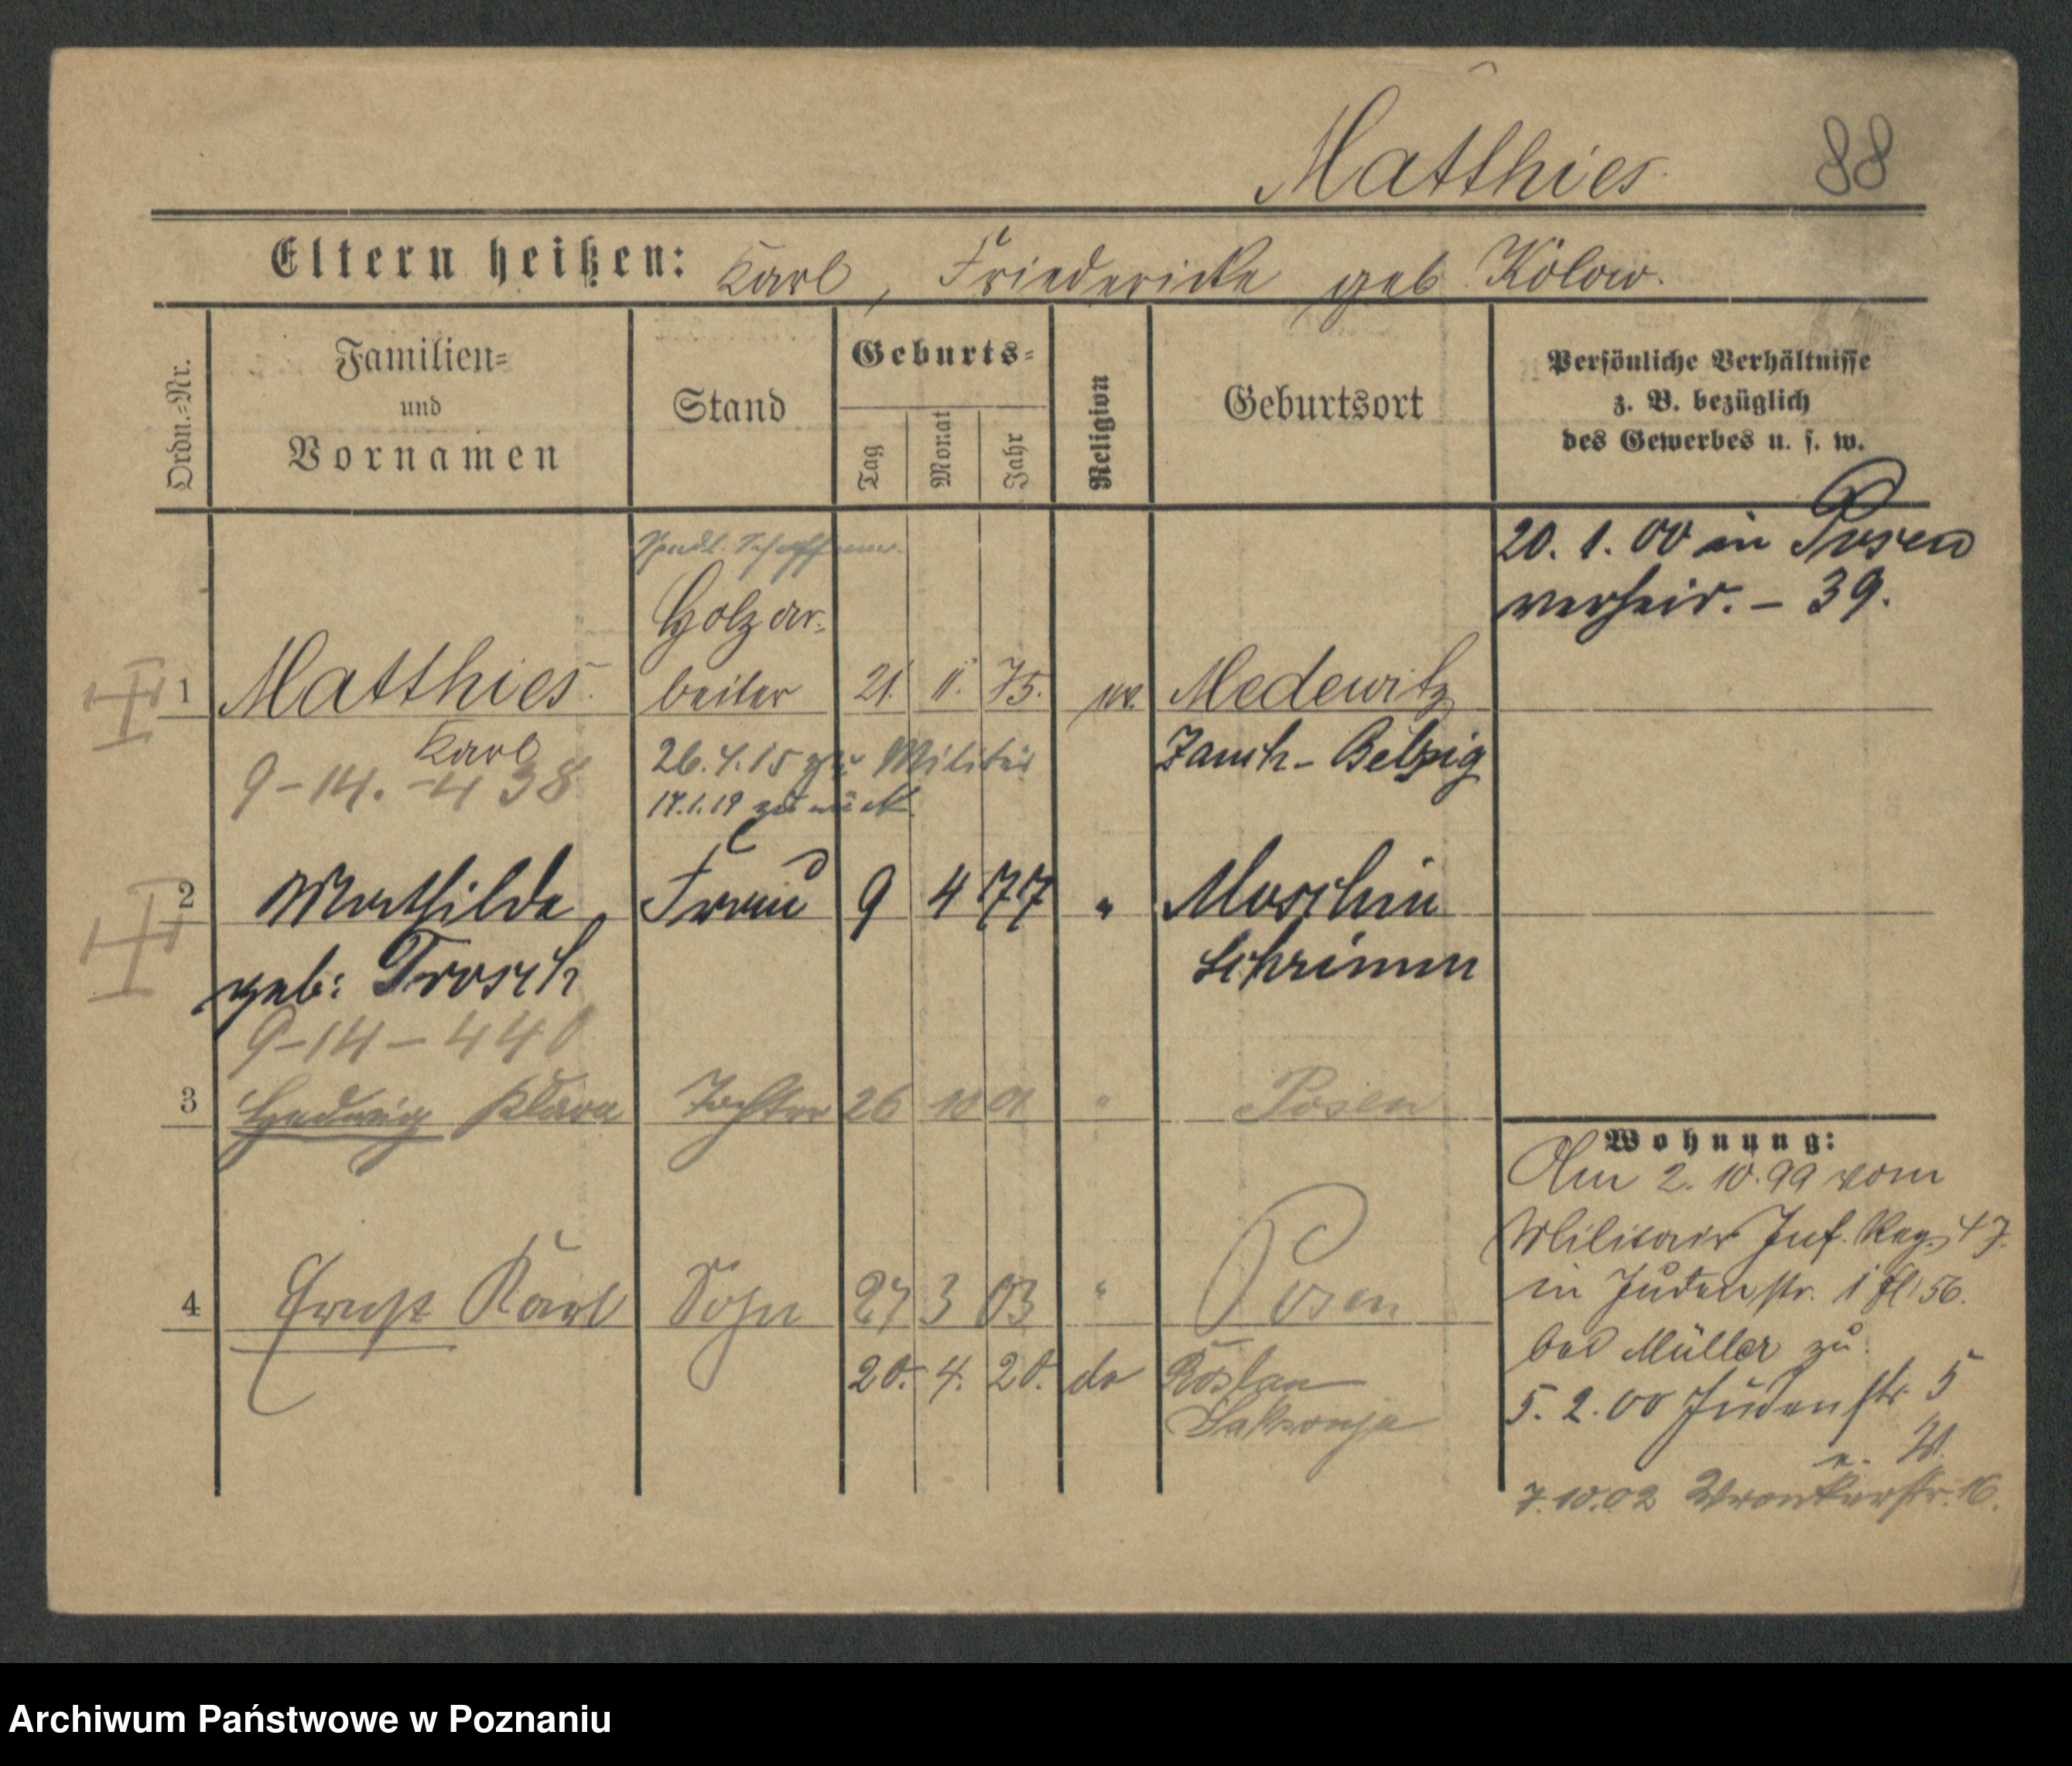 Matthies.
88
Eltern heißen: Karl, Friedericke geb Kölow.
Ordn.=Nr.
Familien=
und
Vornamen
Stand
Geburts=
Tag
Monat
Jahr
Religion
Geburtsort
Persönliche Verhältnisse
z. B. bezüglich
des Gewerbes u. s. w.
20. 1. 00 in Posen
verheir. – 39.
Holzar-
1 Matthies. beiter 21. 11. 75. ev. Medewitz
Karl
Zauch-Belzig
9-14. -438
26.4.15 zu Militär
17.1.19 zurück
2 Mathilde Frau 9 4 77 " Moschin
geb: Trosch
Schrimm
9-14-440
3 Hedwig Klara Tochter 26 10 01 " Posen
4 Ernst Karl Sohn 27 3 03 " Posen
20. 4. 20. do Roslau
Saksonja
Wohnung:
Am 2.10.99 vom
Militair Inf. Reg. 47.
in Judenstr.
bei Müller zu.
5. 2. 00 Judenstr 5
7.10.02 Wronkerstr. 16.
Archiwum Państwowe w Poznaniu